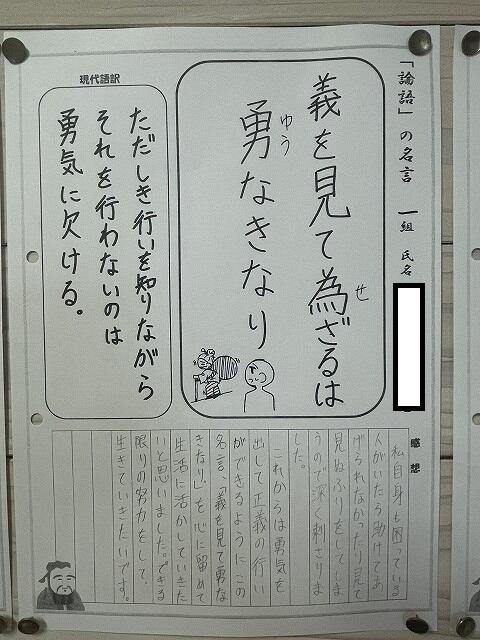 「論語」の名言 一組 氏名
義を見て為ざるは
せ
勇なきなり
ゆう
現代語訳
ただしき行いを知りながら
それを行わないのは
勇気に欠ける。
感想
私自身も困っている
人がいたら助けてあ
げられなかったり見て
見ぬふりをしてしま
うので深く刺さりま
した。
これからは勇気を
出して正義の行い
ができるようにこの
名言、「義を見て勇な
きなり」を心に留めて
生活に活かしていきた
いと思いました。できる
限りの努力をして、
生きていきたいです。